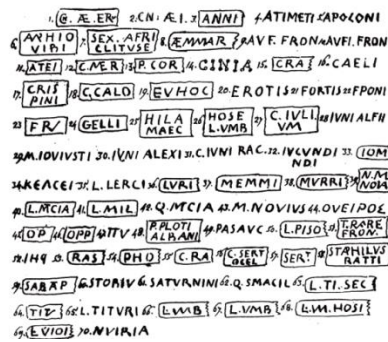 1. Œ. Æ. ER 2. CN: ÆI. 3. ANNI 4. ATIMETI 5. APOLONI
6. ARHIO VIBI 7. SEX. AFRI CLITVSE 8. ÆMMAR 9. AVF. FRON 10. AVFI. FRON
11. ATEI 12. C.MER 13. P. COR 14. CINIA 15. CRA 16. CAELI
17. CRIS PINI 18. C. CALO 19. EVHOC 20. EROTIS 21. FORTIS 22. F.PONI
23. FRV 24. GELLI 25. HILA MAEC 26. HOSE L.VMB 27. C. IVLI VM 28. IVNI ALFII
29. M. IOVIVSTI 30. IVNI ALEXI 31. C. IVNI RAC. 32. IVCVNDI 33. IOM NDI
34. KEACEI 35. L. LERCI 36. LVRI 37. MEMMI 38. MVRRI 39. N.M NOM
40. L. MCIA 41. L. MIL 42. Q. MCIA 43. M. NOVIUS 44. OVEIPOE
45. OP 46. OPP 47. ITV 48. P. PLOTI ALBANI 49. PASAVC 50. L. PISO 51. T. RARE FRON.
52. IHQ 53. RAS 54. PHO 55. C. RA 56. C. SERT OCEL 57. SERT 58. STÆHILVS RATTI
59. SARAP 60. STORIV 61. SATVRNINI 62. Q. SMACIL 63. L. TI. SEC
64. TIV 65. L. TITVRI 66. LVMB 67. L. VMB 68. L. M. HOSI
69. L. VIOI 70. NVIRIA